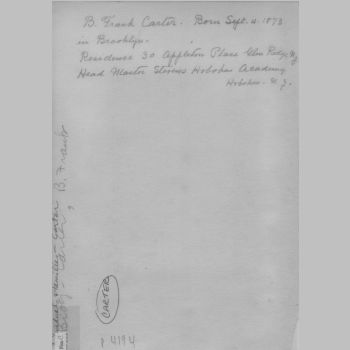 B. Frank Carter. Born Sept. 4. 1873
in Brooklyn.
Residence 30 Appleton Place Glen Ridge N.J.
Head Master Stevens Hoboken Academy
Hoboken. N.J.
Carter B. Frank
Biog - Carter,
CARTER
P 4194